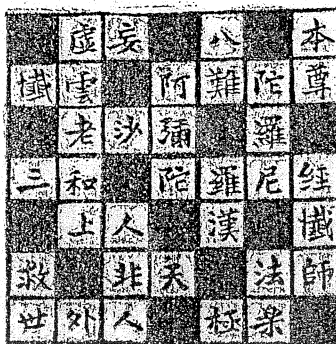 虛妄 八 本
懺雲 阿難陀尊
老沙彌 羅
三和 陀羅尼經
上人 漢 懺
救 非天 法師
世外人 極樂